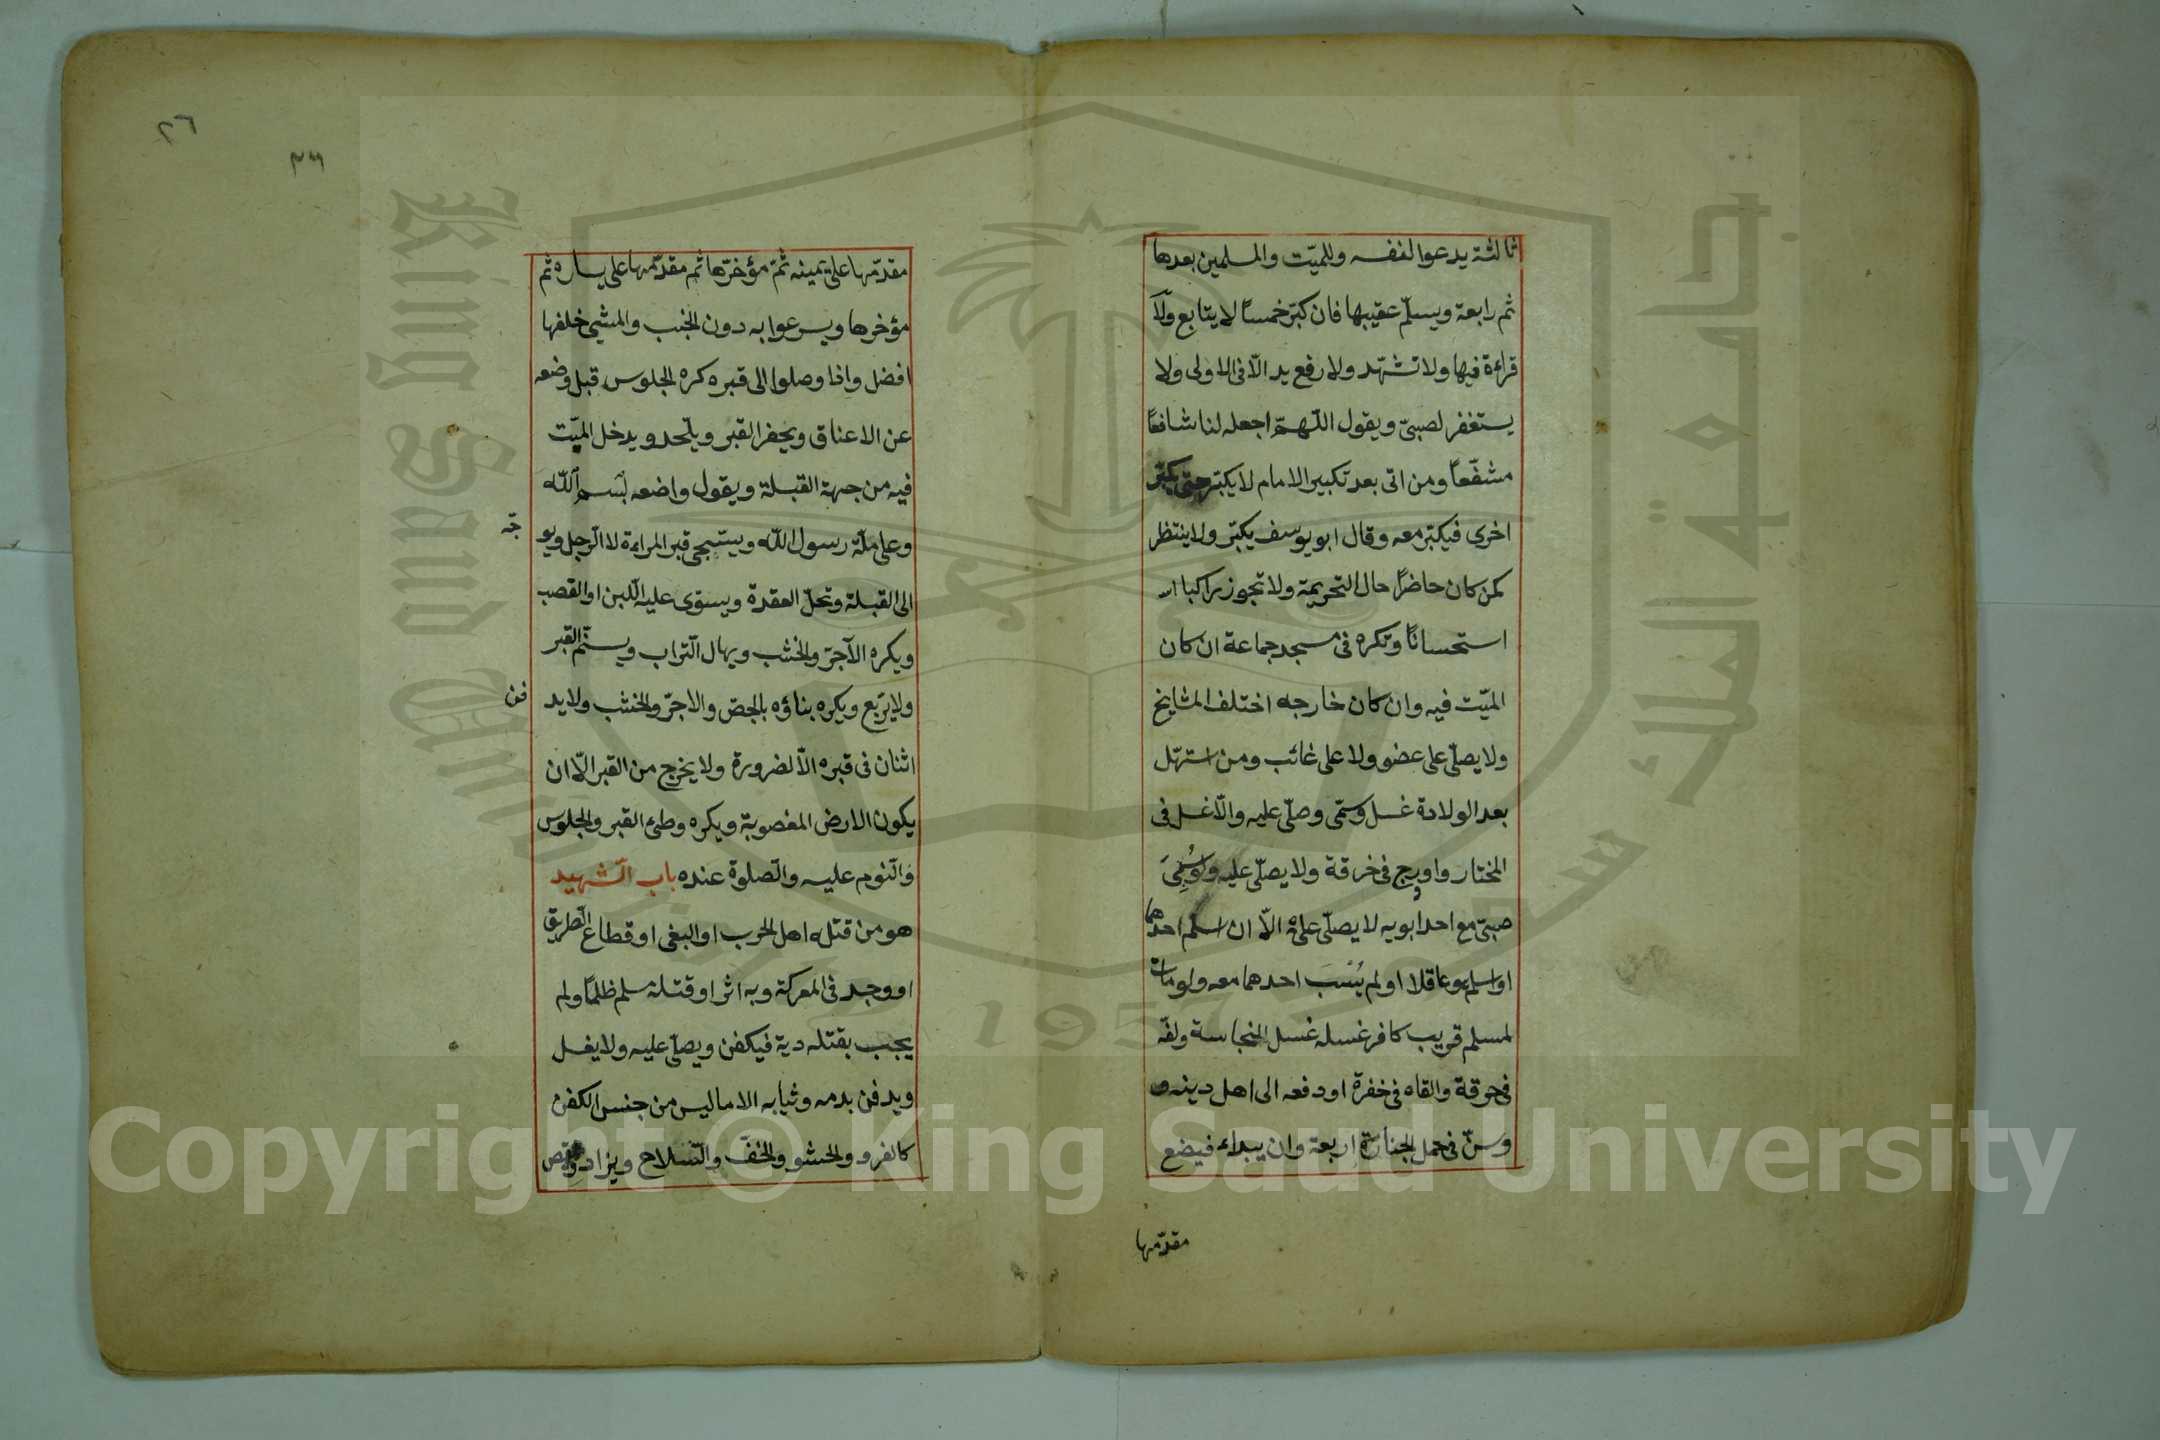 ثالثة يدعوا لنفسه وللميّت والمسلمين بعدها
ثم رابعة ويسلّم عقيبها فان كبّر خمسا لا يتابع ولا
قراءة فيها ولا تشهّد ولا رفع يد الّا فى الاولى ولا
يستغفر لصبىّ ويقول اللّهمّ اجعله لنا شافعًا
مشفّعًا ومن اتى بعد تكبير الامام لا يكبّر حتى يكبّر
اخرى فيكبّر معه وقال ابو يوسف يكبّر ولا ينتظر
كمن كان حاضرًا حال التحريمة ولا تجوز راكبا
استحسانًا وتكره فى مسجد جماعة ان كان
الميّت فيه وان كان خارجه اختلف المشايخ
ولا يصلّى على عضو ولا على غائب ومن استهلّ
بعد الولادة غسل وسمّى وصلّى عليه والّا غسل فى
المختار وادرج فى خرقة ولا يصلّى عليه ولو سُبِىَ
صبىّ مع احد ابويه لا يصلّى عليه الّا ان اسلم احدهما
او اسلم هو عاقلا او لم يُسْبَ احدهما معه ولو مات
لمسلم قريب كافر غسله غسل النجاسة ولفّه
فى خرقة والقاه فى حفرة او دفعه الى اهل دينه
وسنّ فى حمل الجنازة اربعة وان يبداء فيضع
مقدّمها
٢٦
٣٦
مقدّمها على يمينه ثمّ مؤخرّها ثم مقدّمها على يساره ثم
مؤخرها ويسرعوا به دون الخبب والمشى خلفها
افضل واذا وصلوا الى قبره كره الجلوس قبل وضعه
عن الاعناق ويحفر القبر ويلحد ويدخل الميّت
فيه من جهة القبلة ويقول واضعه بسم اللّه
وعلى ملّة رسول اللّه ويسبّجى قبر المراءة لا الرّجل ويو
جّه
الى القبلة وتحلّ العقدة ويسوّى عليه اللّبن او القصب
ويكره الآجرّ والخشب ويهال التّراب ويسنّم القبر
ولا يربّع ويكره بناؤه بالجصّ والاجرّ والخشب ولا يد
فن
اثنان فى قبره الّا لضرورة ولا يخرج من القبر الّا ان
يكون الارض المغصوبة ويكره وطئ القبر والجلوس
والنّوم عليه والصّلوة عنده باب الشّهيد
هو من قتله اهل الحرب او البغى او قطاع الطّريق
او وجد فى المعركة وبه اثر او قتله مسلم ظلمًا ولم
يجب بقتله دية فيكفن ويصلّى عليه ولا يغسل
ويدفن بدمه وثيابه الا ما ليس من جنس الكفن
كالفرو والحشو والخفّ والسّلاح ويزاد وينقص
Copyright © King Saud University
King Saud University
جامعة الملك سعود
1957